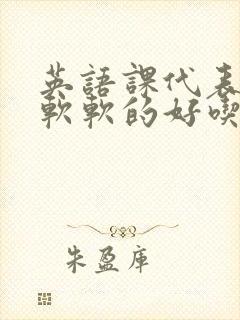 英語課代表
軟軟的好喫
朱盈庫